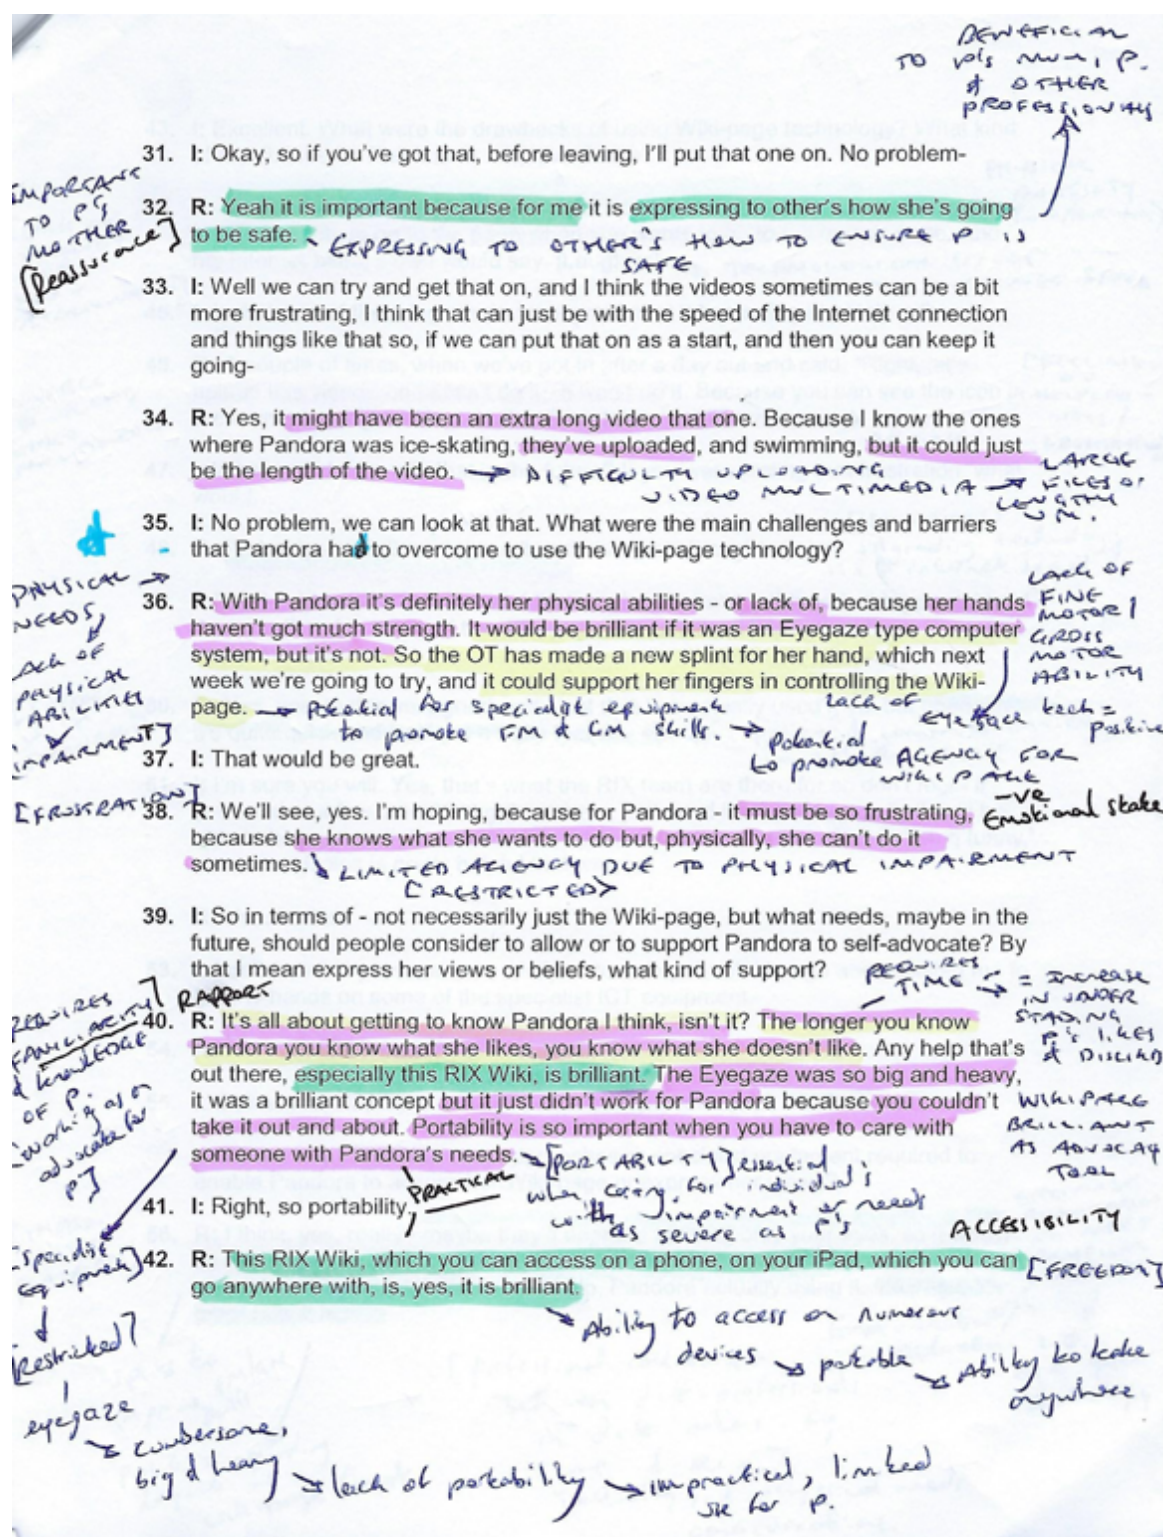 BENEFICIAL
TO P's MUM, P.
& OTHER
PROFESSIONALS
31. I: Okay, so if you've got that, before leaving, I'll put that one on. No problem-
IMPORTANT
TO P'S
MOTHER
[Reassurance]
32. R: Yeah it is important because for me it is expressing to other's how she's going
to be safe.
EXPRESSING TO OTHER'S HOW TO ENSURE P IS
SAFE
33. I: Well we can try and get that on, and I think the videos sometimes can be a bit
more frustrating, I think that can just be with the speed of the Internet connection
and things like that so, if we can put that on as a start, and then you can keep it
going-
34. R: Yes, it might have been an extra long video that one. Because I know the ones
where Pandora was ice-skating, they've uploaded, and swimming, but it could just
be the length of the video.
→ DIFFICULTY UPLOADING
VIDEO MULTIMEDIA →
LARGE
FILES OR
LENGTHY
35. I: No problem, we can look at that. What were the main challenges and barriers
that Pandora had to overcome to use the Wiki-page technology?
PHYSICAL →
NEEDS,
Lack of
PHYSICAL
ABILITIES
IMPAIRMENT]
36. R: With Pandora it's definitely her physical abilities - or lack of, because her hands
haven't got much strength. It would be brilliant if it was an Eyegaze type computer
system, but it's not. So the OT has made a new splint for her hand, which next
week we're going to try, and it could support her fingers in controlling the Wiki-
page.
LACK OF
FINE
MOTOR /
GROSS
MOTOR
ABILITY
→ Potential for specialist equipment
to promote FM & GM skills. →
Lack of
tech =
Positive
potential
to promote AGENCY FOR
WIKIPAGE
37. I: That would be great.
[FRUSTRATION]
38. R: We'll see, yes. I'm hoping, because for Pandora - it must be so frustrating,
because she knows what she wants to do but, physically, she can't do it
sometimes.
-ve
Emotional state
LIMITED AGENCY DUE TO PHYSICAL IMPAIRMENT
[RESTRICTED]
39. I: So in terms of - not necessarily just the Wiki-page, but what needs, maybe in the
future, should people consider to allow or to support Pandora to self-advocate? By
that I mean express her views or beliefs, what kind of support?
REQUIRES
TIME
= Increase
IN UNDER
STADING
P's LIKES
REQUIRES
FAMILIARITY
& knowledge
OF P.
[working as a
advocate for
P"]
RAPPORT
40. R: It's all about getting to know Pandora I think, isn't it? The longer you know
Pandora you know what she likes, you know what she doesn't like. Any help that's
out there, especially this RIX Wiki, is brilliant. The Eyegaze was so big and heavy,
it was a brilliant concept but it just didn't work for Pandora because you couldn't
take it out and about. Portability is so important when you have to care with
someone with Pandora's needs.
WIKIPAGE
BRILLIANT
AS ADVOCACY
TOOL
[PORTABILITY] essential
when caring for individual's
with impairment or needs
as severe as P's
PRACTICAL
41. I: Right, so portability.
ACCESSIBILITY
[specialist
Equipment]
42. R: This RIX Wiki, which you can access on a phone, on your iPad, which you can
go anywhere with, is, yes, it is brilliant.
[FREEDOM]
Ability to access on numerous
devices
portable
Ability to take
anywhere
[Restricted]
eyegaze
cumbersome,
big & heavy
lack of portability
impractical, limited
use for P.